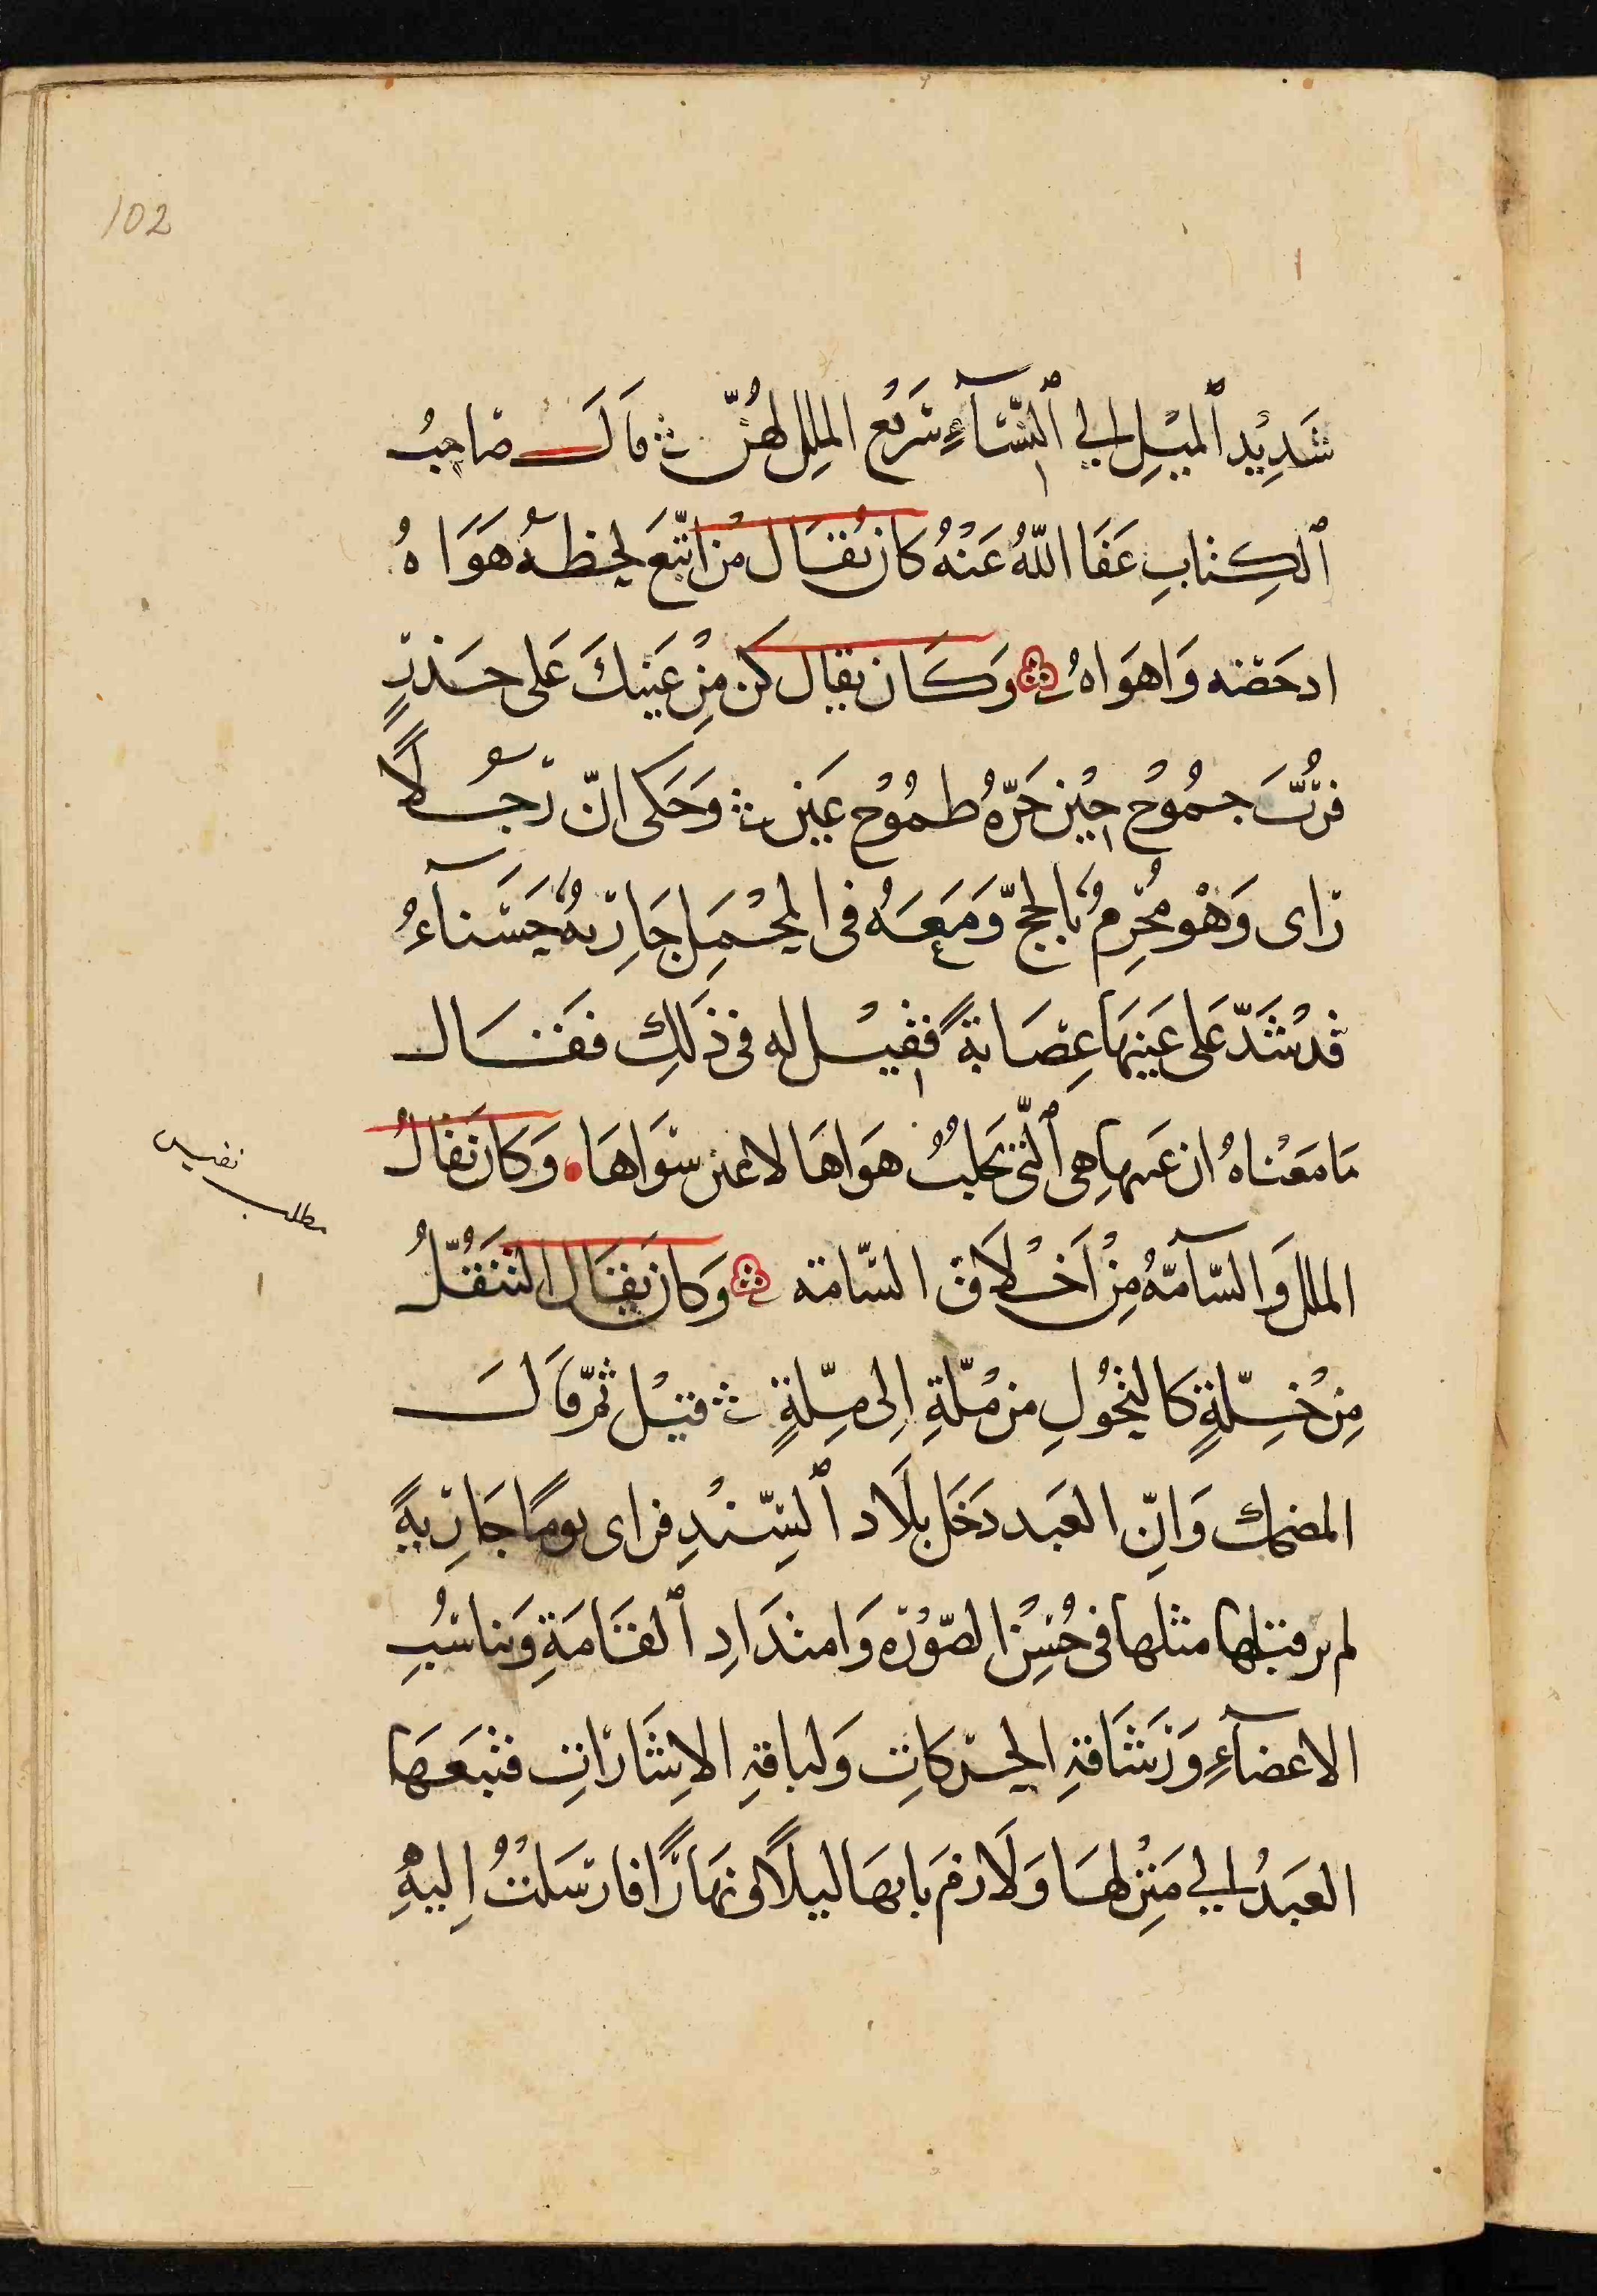 102
شَدِيْد ٱلميْلِ الي ٱلنّسَآءِ سَرِيْعُ الملِل لهُنّ قَالَ صَاحِبُ
ٱلكِتابِ عَفَا اللّهُ عَنْهُ كان يُقَال مَن اتّبَعَ لحظهُ هَوَاهُ
ادحَضَه وَاهوَاهُ وَكَان يقال كن مِنْ عَينِكَ عَلى حَذرٍ
فرُبَّ جمُوْحِ حِيْنٍ جَرّهُ طمُوْحُ عَينٍ وَحَكى انّ رَجُلًا
رَاى وَهْو مُحْرِمٌ بالحجّ وَمَعَهُ فى المحْمِل جَارِيهٌ حَسْناءُ
قدْ شَدّ عَلى عَينِهَا عِصَابةً فقيْل له فى ذَلِكِ فقَال
مَا مَعْناهُ ان عينها هِى ٱلّتى تجلبُ هوَاهَا لا عين سوَاهَا وَكان يقالُ
الملل وَالسّآمهُ مِنْ اَخْلَاق السّامه وَكان يقَال التنَقّلُ
مِنْ خُلّةٍ كالتحُوْلِ من مْلّةِ اِلى مِلّةٍ قيْل ثمّ قَالَ
المضحك وَانّ العَبد دَخَل بلَاد ٱلسّنْدِ فراى يومًا جَارِيةً
لم ير قبلها مثلها فى حُسْن الصّوْره وَامتدَادِ ٱلقَامَةِ وَتناسُبِ
الاعضآءِ وَرَشَاقةِ الحرْكاتِ وَلباقةِ الاِشَارَاتِ فتبعَهَا
العَبدُ الي مَنْزلهَا وَلَازمَ بابهَا ليلًا ونهَارًا فارْسَلتْ اِليهِ
نفيس
مطلب